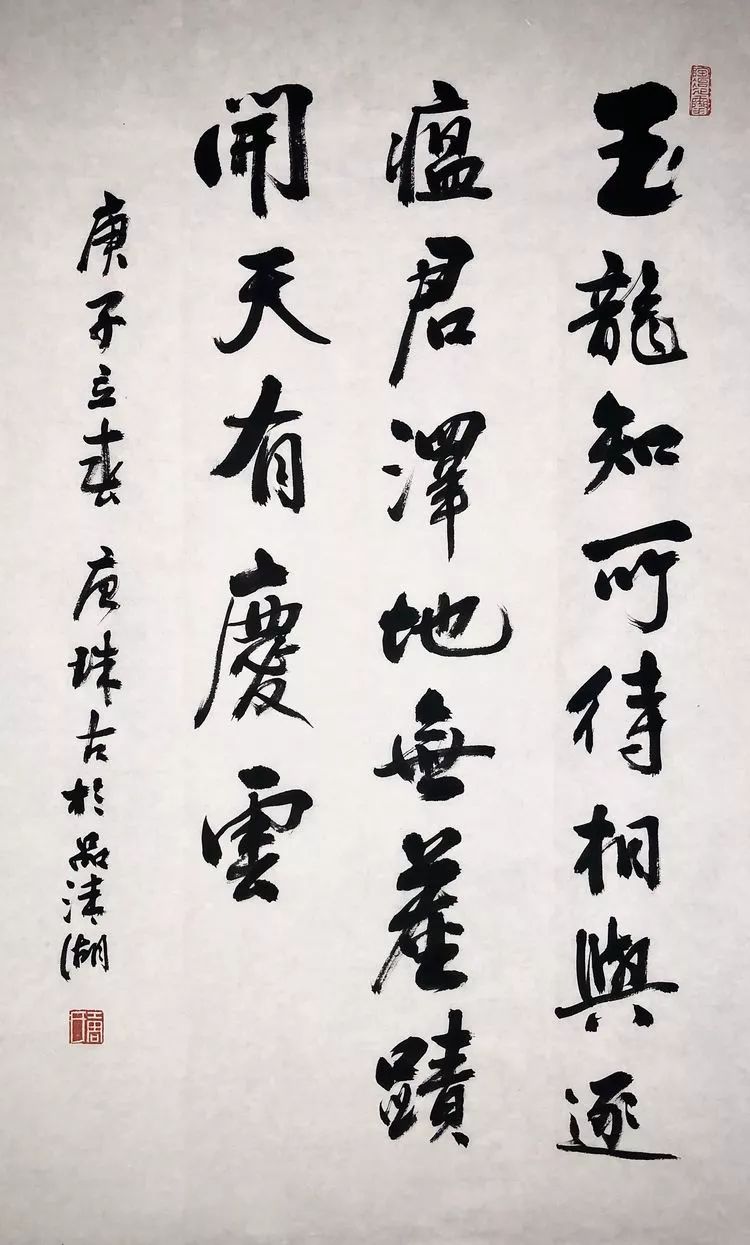 玉龍知可待相與逐
瘟君澤地無塵蹟
開天有慶雲
庚子立春 唐珠古於品清湖